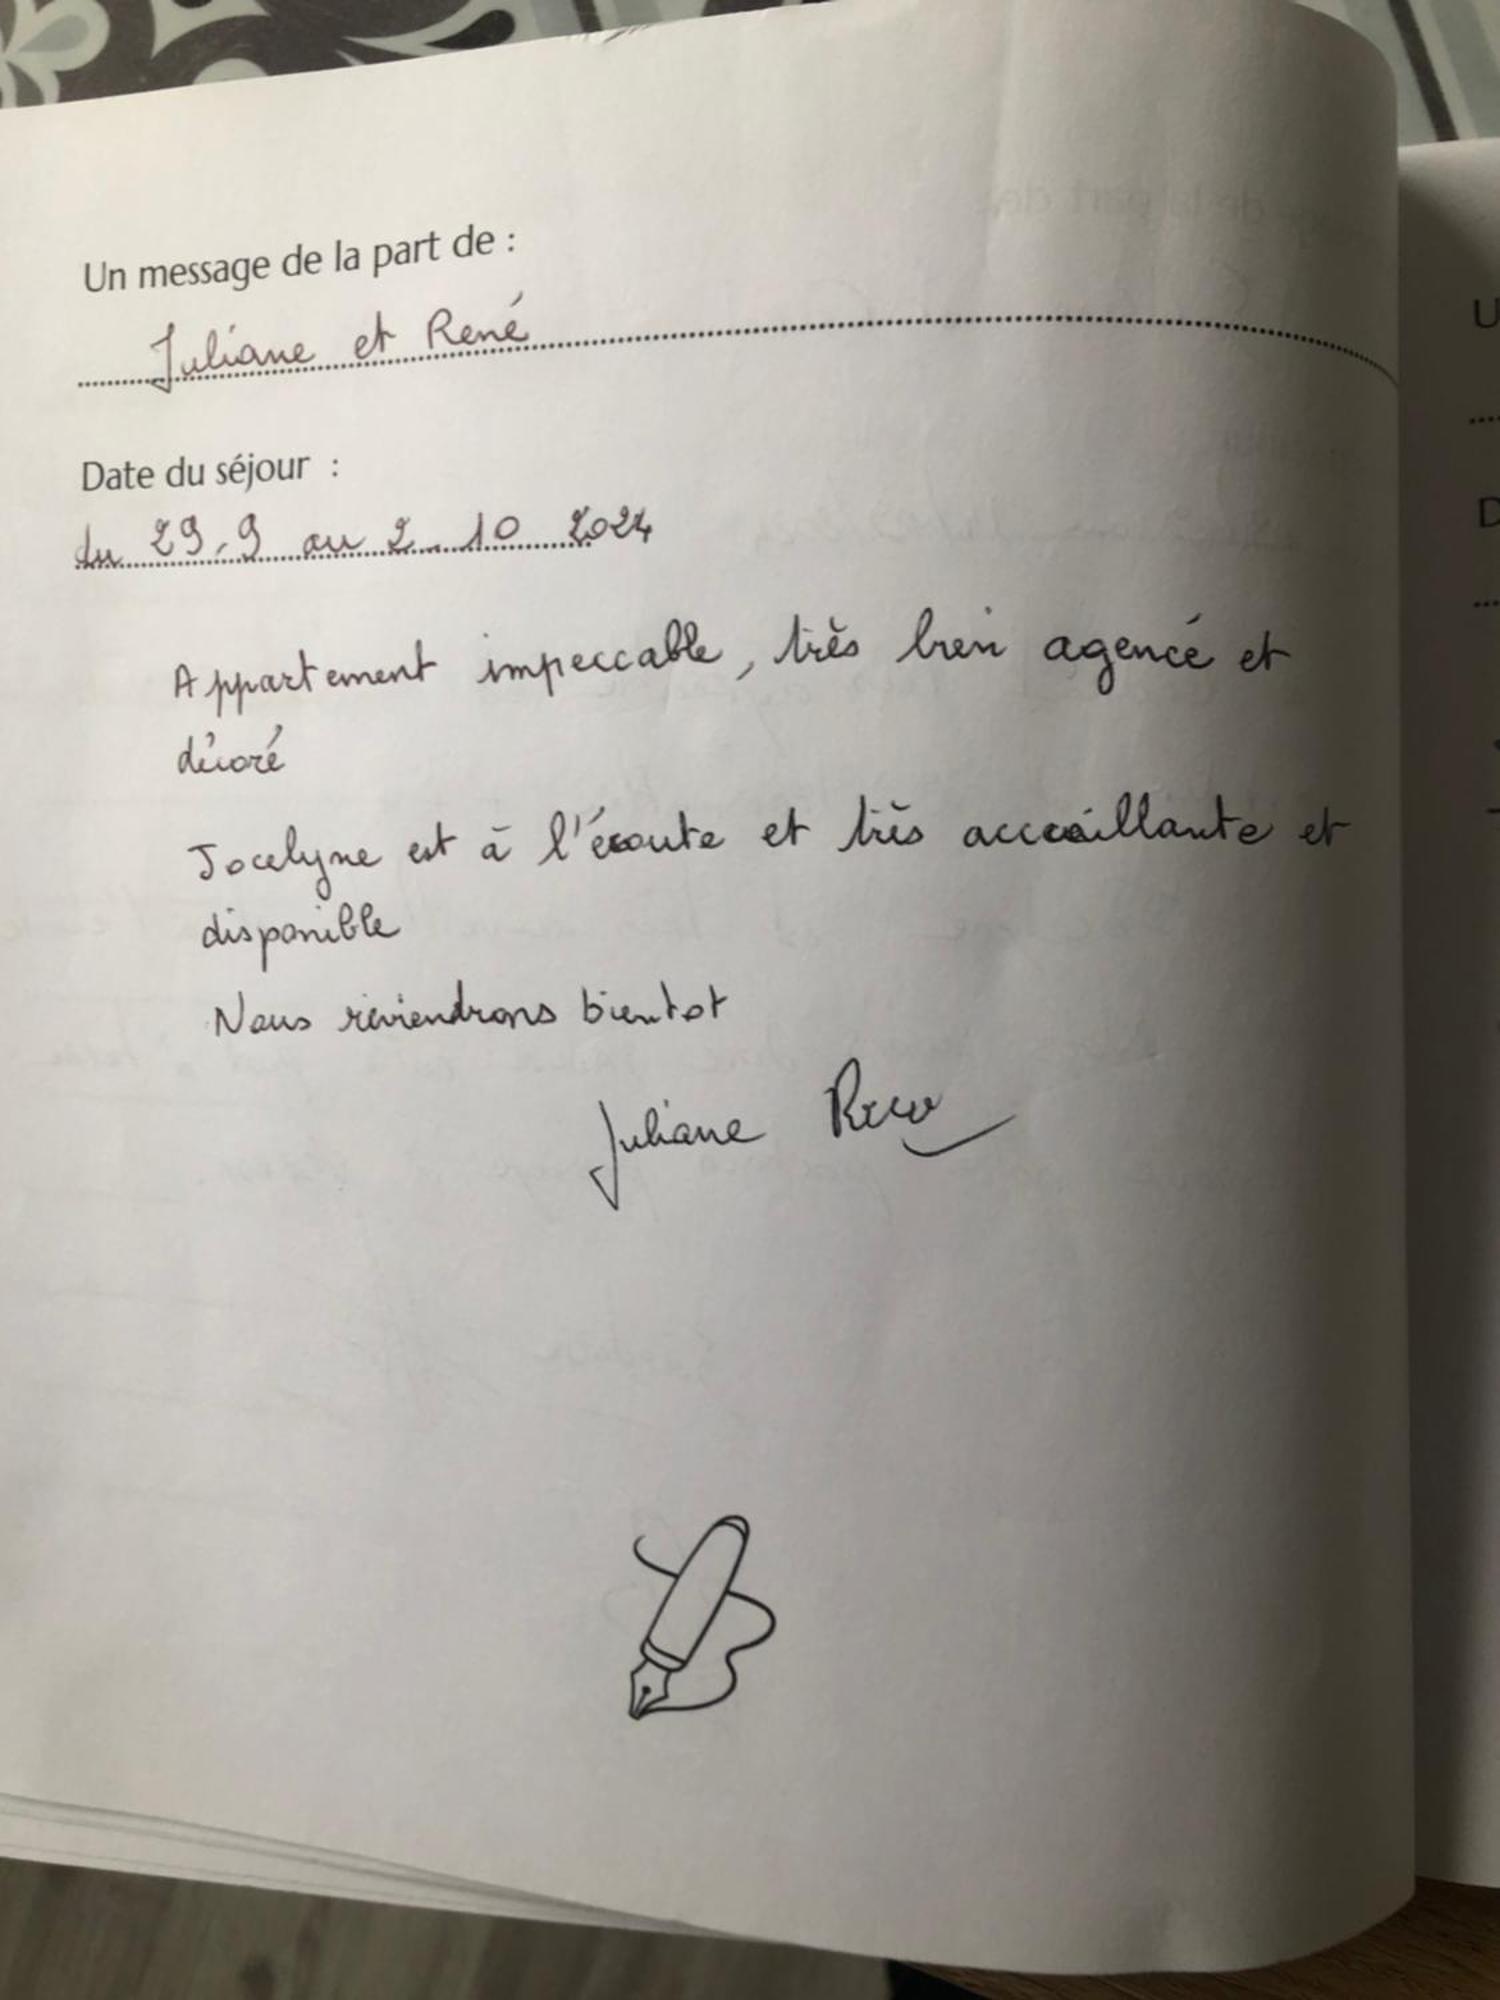 Un message de la part de :
Juliane et René
Date du séjour :
du 29.9 au 2.10 2024
Appartement impeccable, très bien agencé et
décoré
Jocelyne est à l'écoute et très acceuillante et
disponible
Nous reviendrons bientot
Juliane René